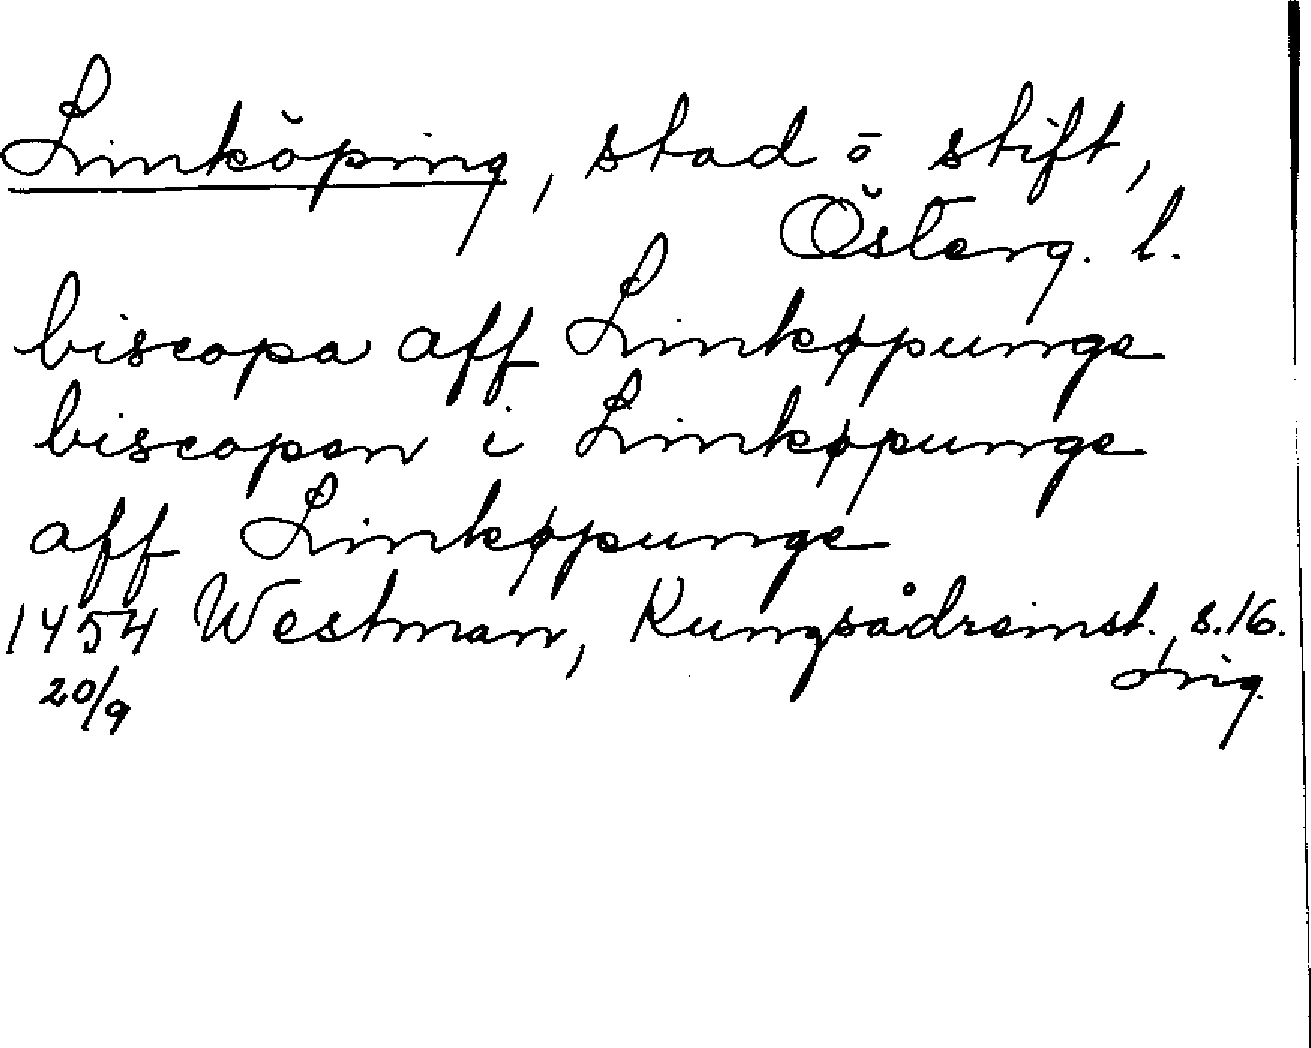 Linköping, stad o stift,
Österg. l.
biscopa aff Linkøpunge
biscopen i Linkøpunge
aff Linkøpunge
1454 Westman, Kungsådreinst., s. 16.
20/9 orig.